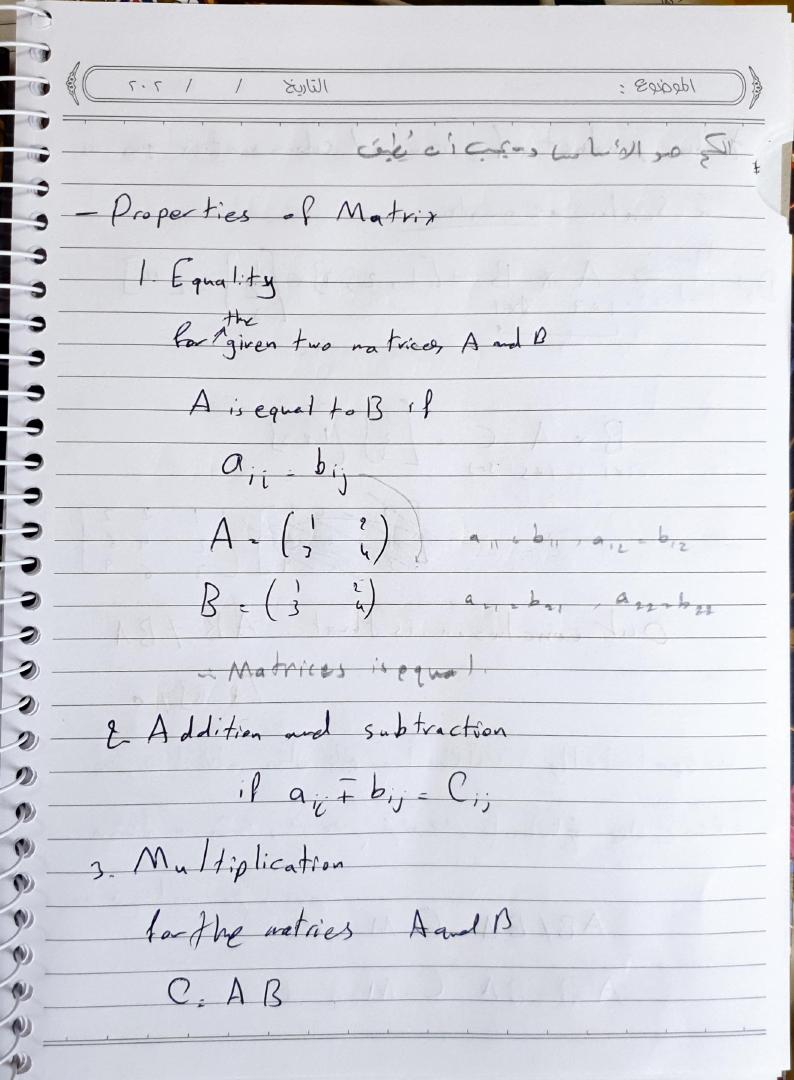 الموضوع : التاريخ / / ٢٠٢
الكم هو الأساس ويجب أن يُطبق
- Properties of Matrix
1. Equality
for the given two matrices A and B
A is equal to B if
a_ij = b_ij
A = (1 2
3 4) a_11 = b_11 , a_12 = b_12
B = (1 2
3 4) a_21 = b_21 , a_22 = b_22
∴ Matrices is equal.
2- Addition and subtraction
if a_ij ∓ b_ij = C_ij
3. Multiplication
for the matries A and B
C = A B